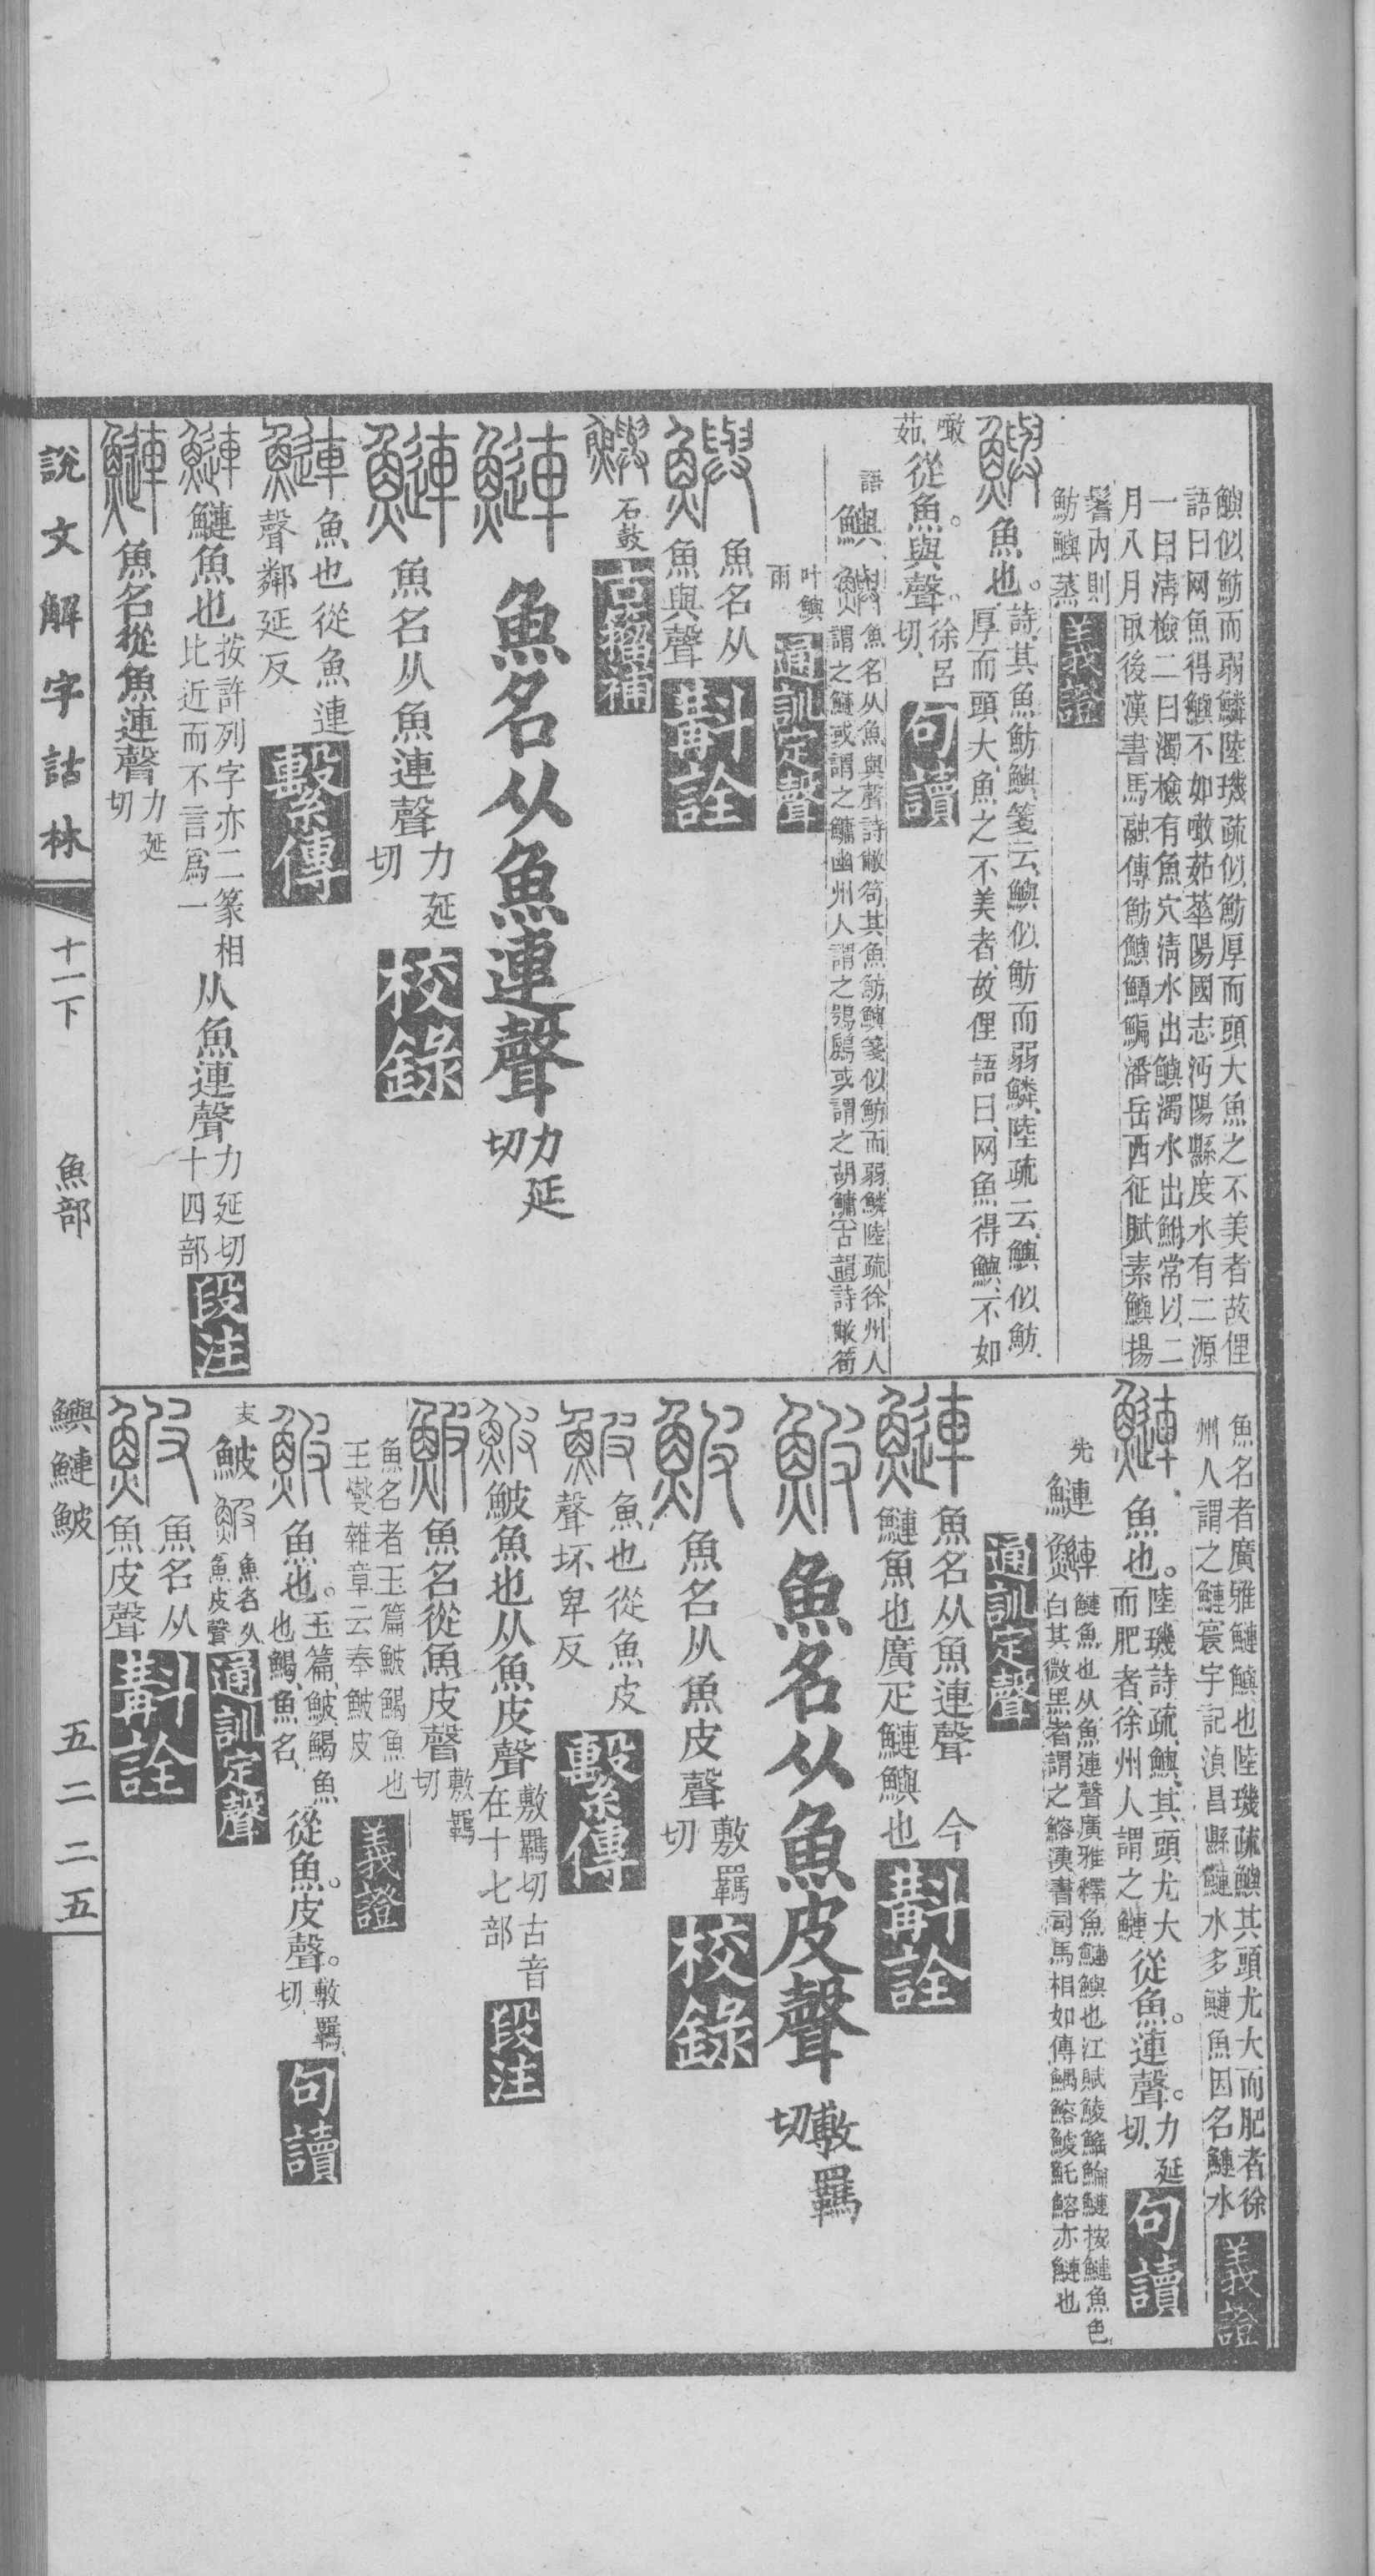 鱮似魴而弱鱗陸璣疏似魴厚而頭大魚之不美者故俚
語曰网魚得鱮不如噉茹華陽國志沔陽縣度水有二源
一曰淸檢二曰濁檢有魚穴淸水出鱮濁水出鮒常以二
月八月取後漢書馬融傳魴鱮鱏鯿潘岳西征賦素鱮揚
鬐內則
魴鱮烝
義證
魚也。詩、其魚魴鱮、箋云、鱮似魴而弱鱗、陸疏云、鱮似魴、
厚而頭大、魚之不美者、故俚語曰、网魚得鱮、不如
噉
茹、從魚。與聲。徐呂
切、
句讀
語
鱮
魚名从魚與聲詩敝笱其魚魴鱮箋似魴而弱鱗陸疏徐州人
謂之鰱或謂之鱅幽州人謂之鴞鷉或謂之胡鱅(古韻)詩敝笱
叶鱮
雨
通訓定聲
魚名从
魚與聲
斠詮
石鼓
古籀補
魚名从魚連聲力延
切
魚名从魚連聲力延
切
校錄
魚也從魚連
聲鄰延反
繫傳
鰱魚也按許列字亦二篆相
比近而不言爲一从魚連聲力延切
十四部
段注
魚名從魚連聲力延
切
說文解字詁林
十一下
魚部
鱮鰱鮍
五二二五
魚名者廣雅鰱鱮也陸璣疏鱮其頭尤大而肥者徐
州人謂之鰱寰宇記滇昌縣鰱水多鰱魚因名鰱水
義證
魚也。陸璣詩疏、鱮、其頭尤大
而肥者、徐州人謂之鰱、從魚。連聲。力延
切、
句讀
先
鰱
鰱魚也从魚連聲廣雅釋魚鰱鱮也江賦鯪鰩鯩鰱按鰱魚色
白其微黑者謂之鰫漢書司馬相如傳鰅鰫鰬魠鰫亦鰱也
通訓定聲
魚名从魚連聲今
鰱魚也廣疋鰱鱮也
斠詮
魚名从魚皮聲敷羈
切
魚名从魚皮聲敷羈
切
校錄
魚也從魚皮
聲坏卑反
繫傳
鮍魚也从魚皮聲敷羈切古音
在十七部
段注
魚名從魚皮聲敷羈
切
魚名者玉篇鮍鰑魚也
王燮雜章云奉鮍皮
義證
魚也。玉篇、鮍、鰑魚
也、鰑、魚名、從魚。皮聲。敷羈
切、
句讀
支
鮍
魚名从
魚皮聲
通訓定聲
魚名从
魚皮聲
斠詮